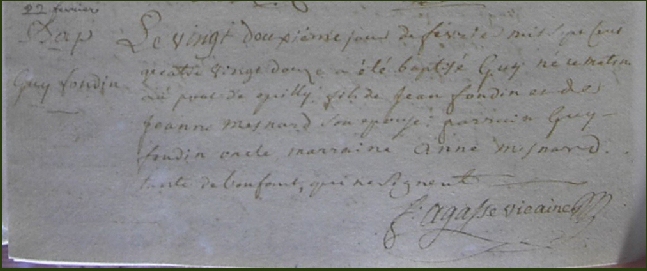 22 fevrier
Bap
Guy foudin
Le vingt deuxième jour de fevrier mil sept cent
quatre vingt douze a été baptisé Guy né ce matin
au pont de filly fils de Jean foudin et de
Jeanne mesnard son epouse parrain Guy
foudin oncle marraine anne mesnard
tante de l'enfant, qui ne signent
agasse vicaire